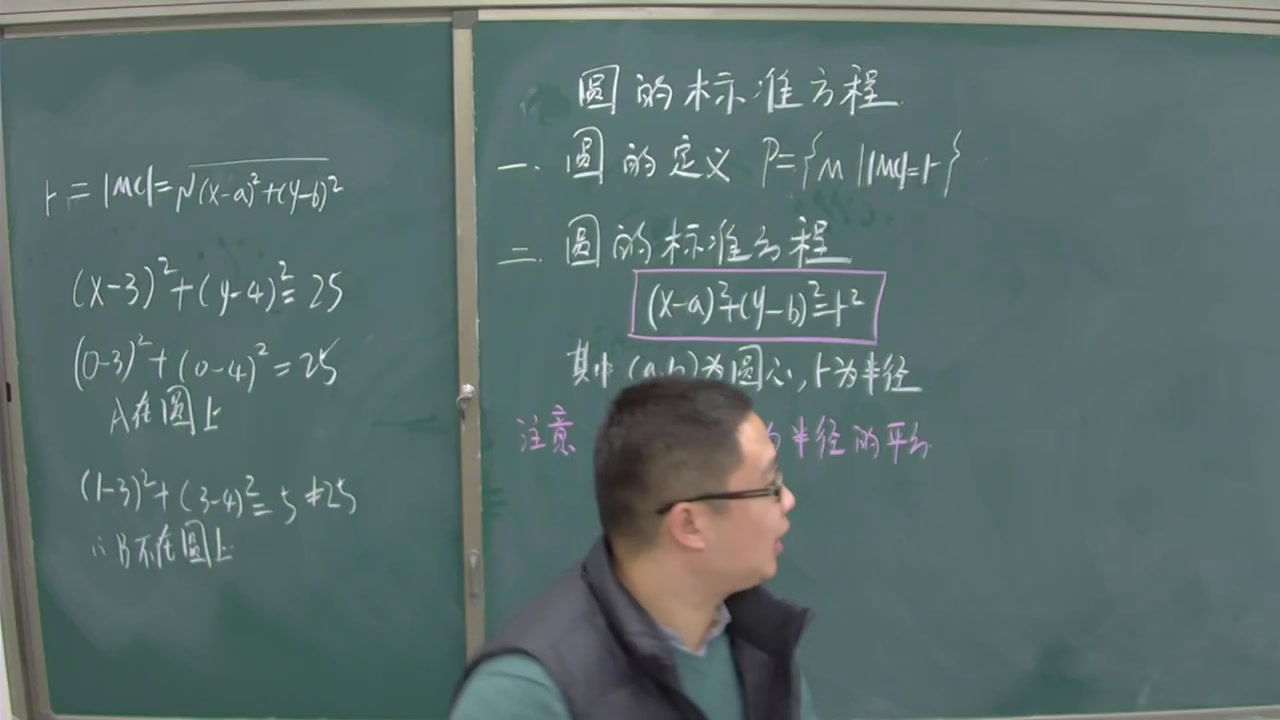 r=|MC|=√(x-a)²+(y-b)²
(x-3)²+(y-4)²=25
(0-3)²+(0-4)²=25
A在圆上
(1-3)²+(3-4)²=5≠25
∴B不在圆上
圆的标准方程
一.圆的定义 P={M||MC|=r}
二.圆的标准方程
(x-a)²+(y-b)²=r²
其中(a,b)为圆心,r为半径
注意 半径的平方